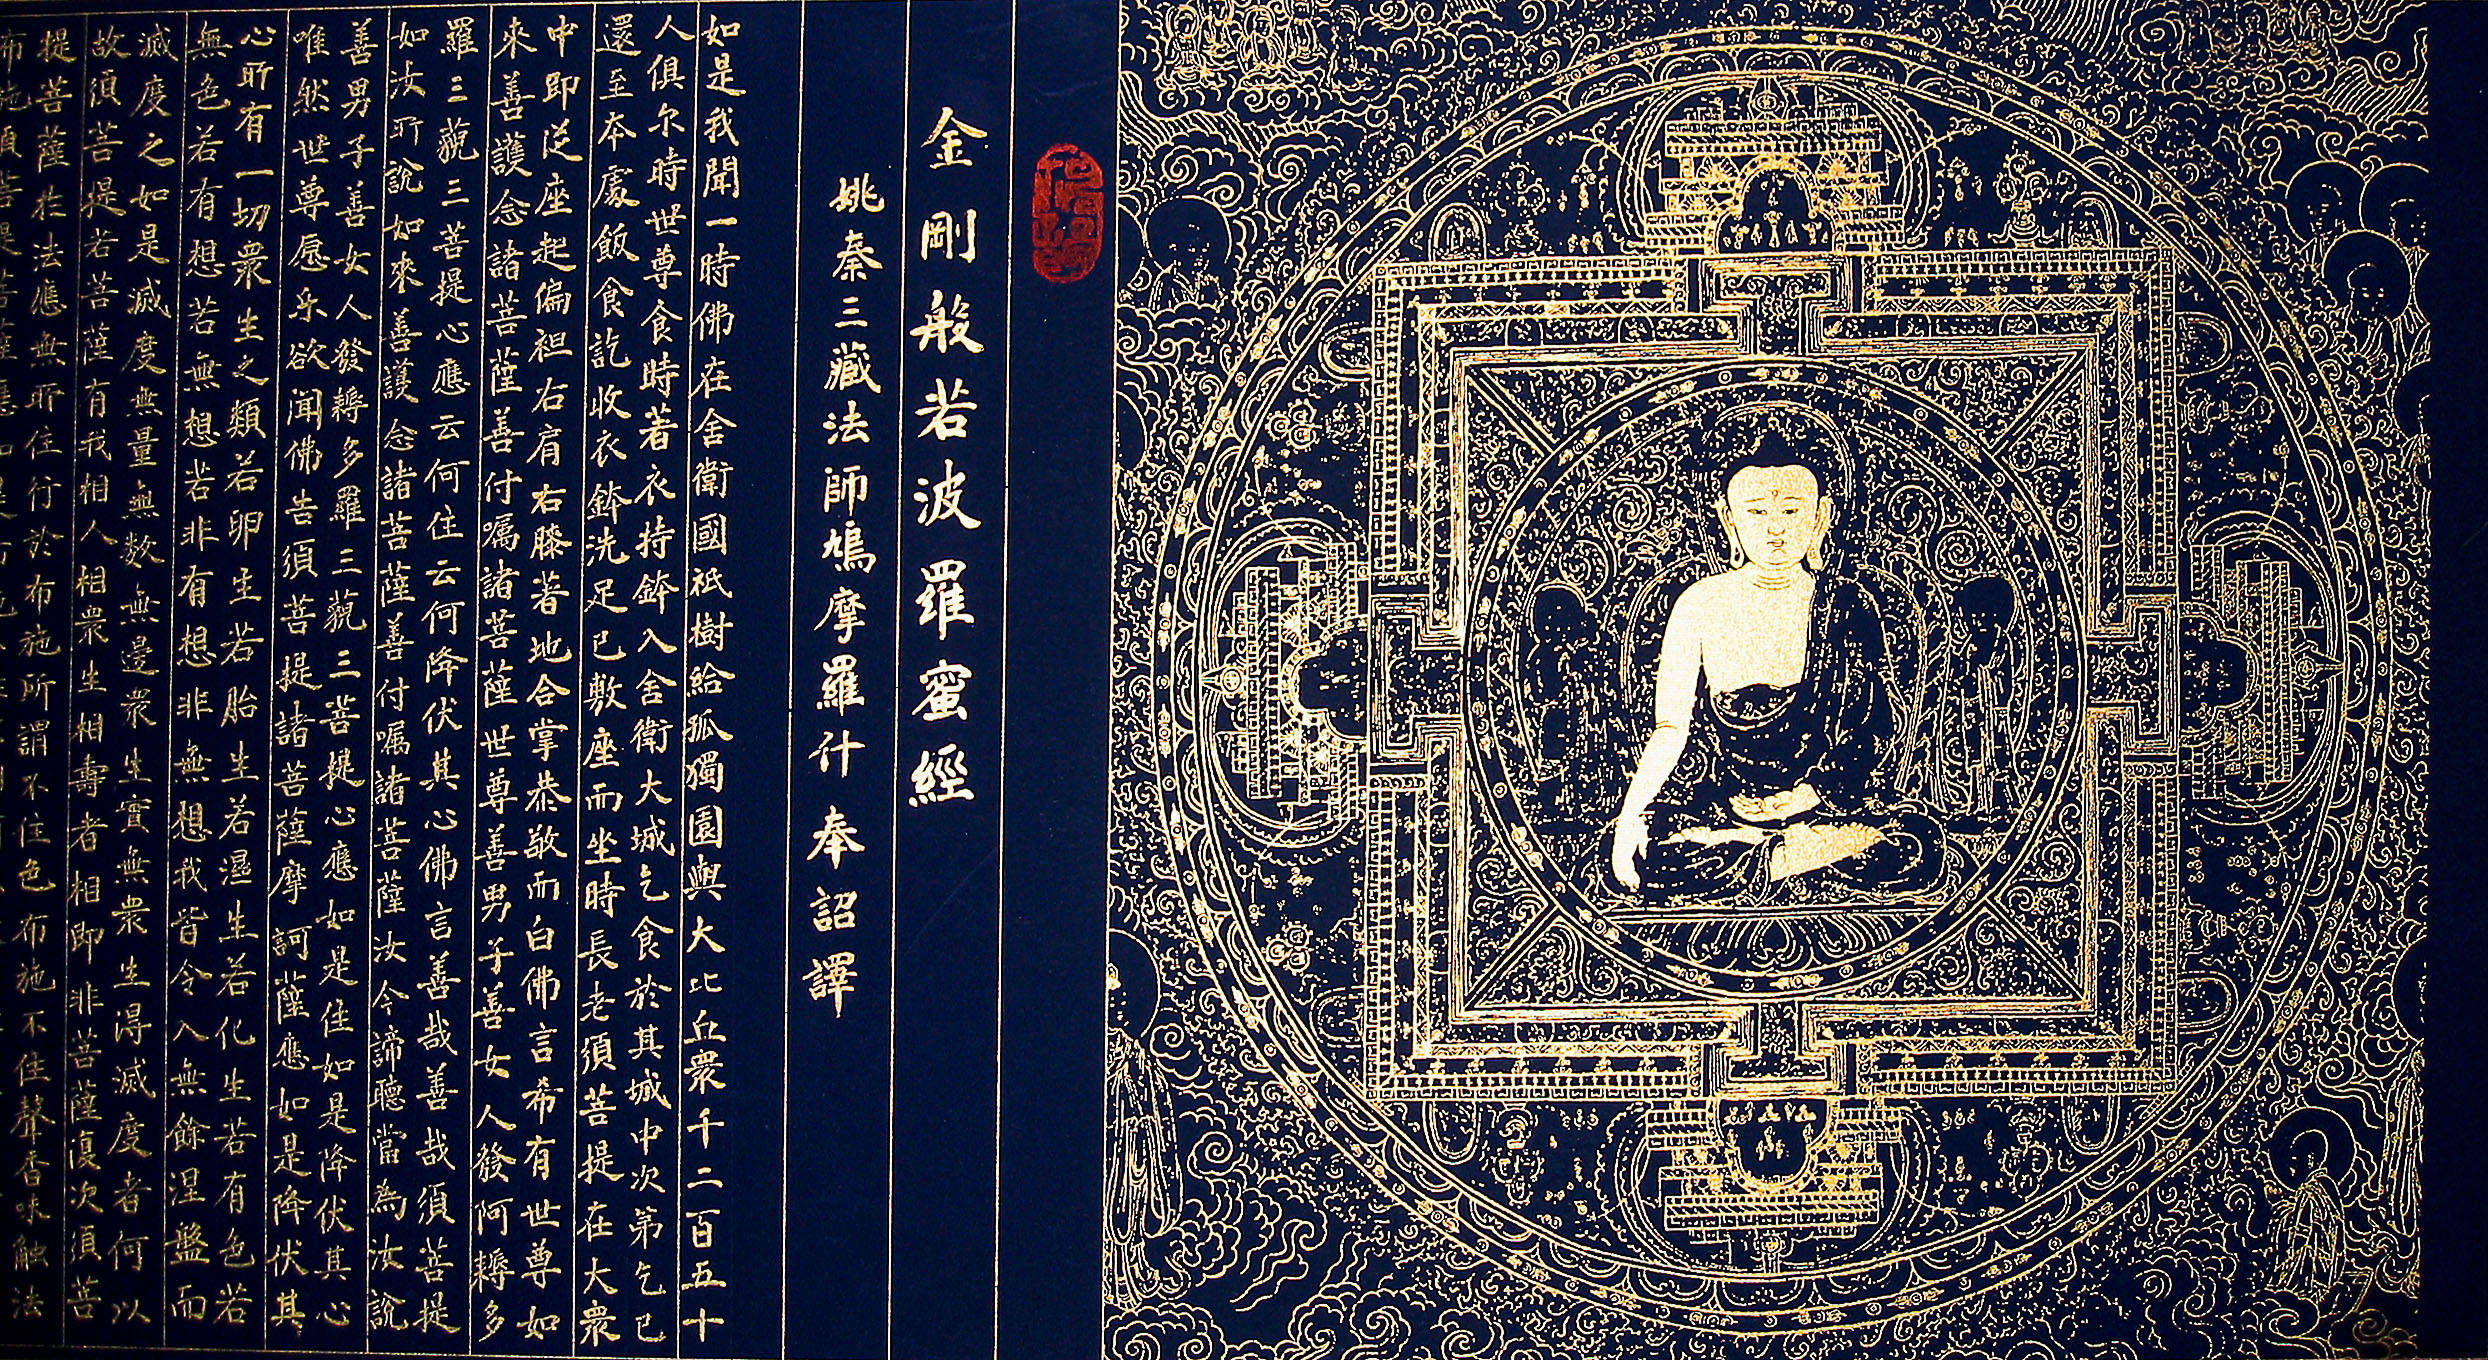 金剛般若波羅蜜經
姚秦三藏法師鳩摩羅什奉詔譯
如是我聞一時佛在舍衛國祇樹給孤獨園與大比丘眾千二百五十
人俱尔時世尊食時著衣持鉢入舍衛大城乞食於其城中次第乞已
還至本處飯食訖收衣鉢洗足已敷座而坐時長老須菩提在大眾
中即從座起偏袒右肩右膝著地合掌恭敬而白佛言希有世尊如
來善護念諸菩薩善付囑諸菩薩世尊善男子善女人發阿耨多
羅三藐三菩提心應云何住云何降伏其心佛言善哉善哉須菩提
如汝所說如來善護念諸菩薩善付囑諸菩薩汝今諦聽當為汝說
善男子善女人發耨多羅三藐三菩提心應如是住如是降伏其心
唯然世尊愿乐欲聞佛告須菩提諸菩薩摩訶薩應如是降伏其
心所有一切眾生之類若卵生若胎生若濕生若化生若有色若
無色若有想若無想若非有想非無想我皆令入無餘涅盤而
滅度之如是滅度無量無数無邊眾生實無眾生得滅度者何以
故須菩提若菩薩有我相人相眾生相壽者相即非菩薩復次須菩
提菩薩於法應無所住行於布施所謂不住色布施不住聲香味触法
布施須菩提菩薩應如是